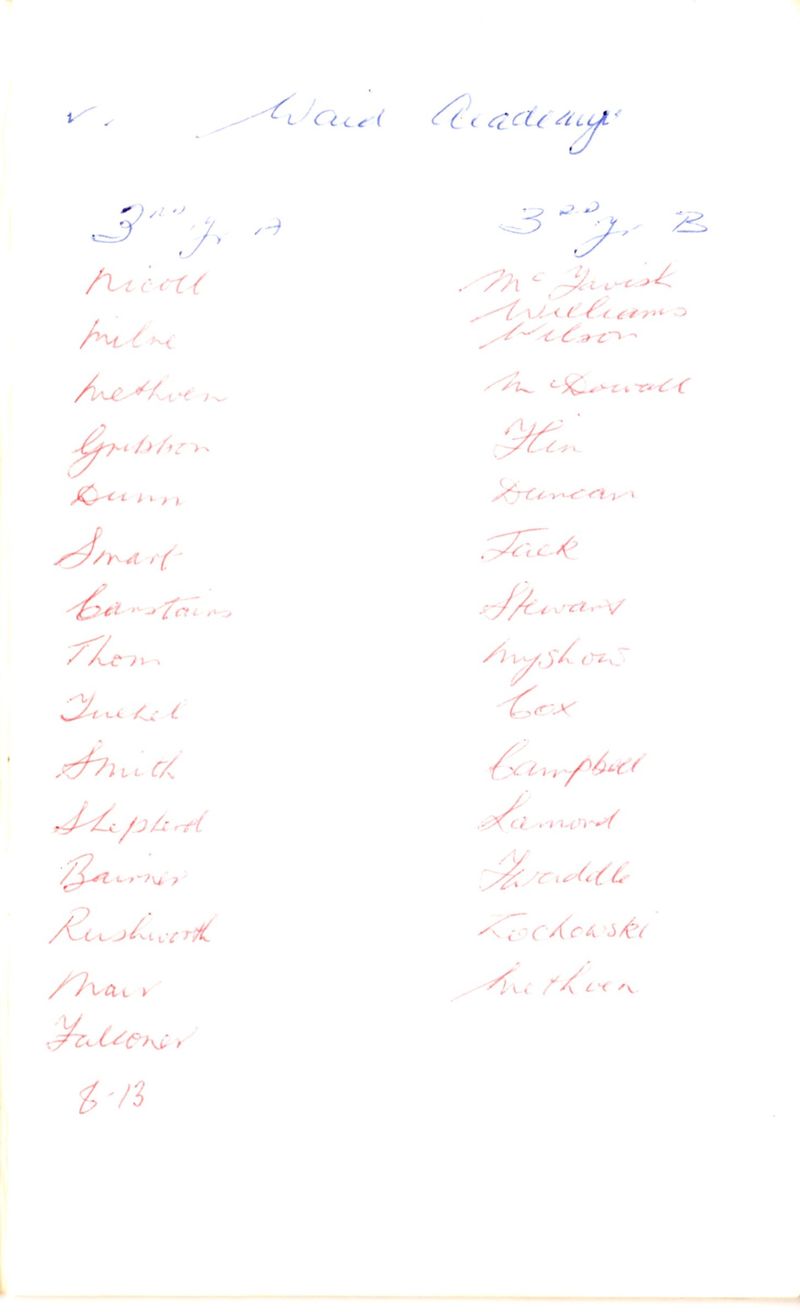 v. Waid Academy
3rd yr A
Nicoll
Milne
Methven
Gribbon
Dunn
Smart
Carstairs
Thom
Smith
Shepherd
Bairner
Rushworth
Mair
Falconer
8-13
3rd yr. B
McTavish
Williams
Wilson
McDowall
Flin
Duncan
Jack
Stewart
Myshow
Cox
Campbell
Lamond
Twaddle
Zochowski
Methven